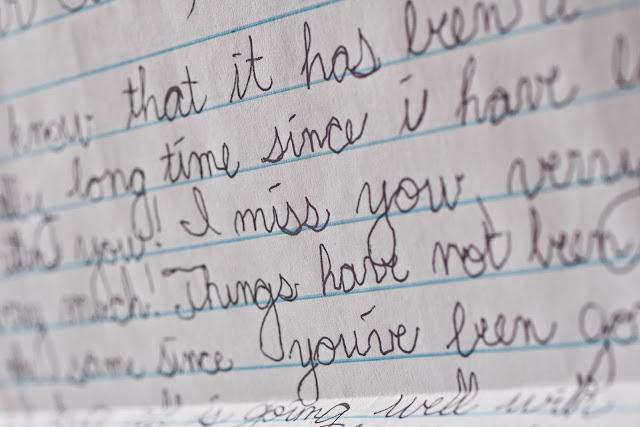 know that it has been a
long time since i have
you! I miss you, verry
much! Things have not been
same since you've been
is going well with